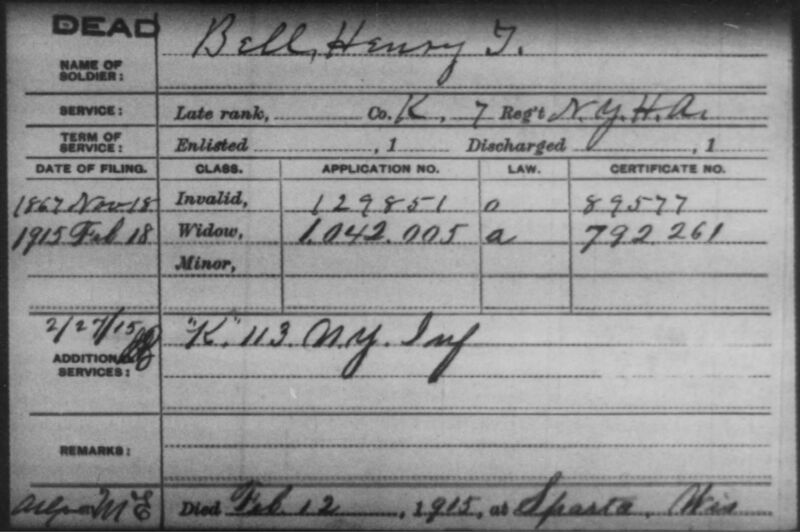 DEAD
NAME OF SOLDIER: Bell, Henry T.
SERVICE: Late rank, Co. K, 7 Reg't N.Y.H.A.
TERM OF SERVICE: Enlisted , 1 Discharged , 1
DATE OF FILING. CLASS. APPLICATION NO. LAW. CERTIFICATE NO.
1867 Nov 18 Invalid, 129851 o 89577
1915 Feb 18 Widow, 1.042.005 a 792.261
Minor,
2/27/15
ADDITIONAL SERVICES: "K." 113. N.Y. Inf
REMARKS:
Died Feb. 12, 1915, at Sparta, Wis